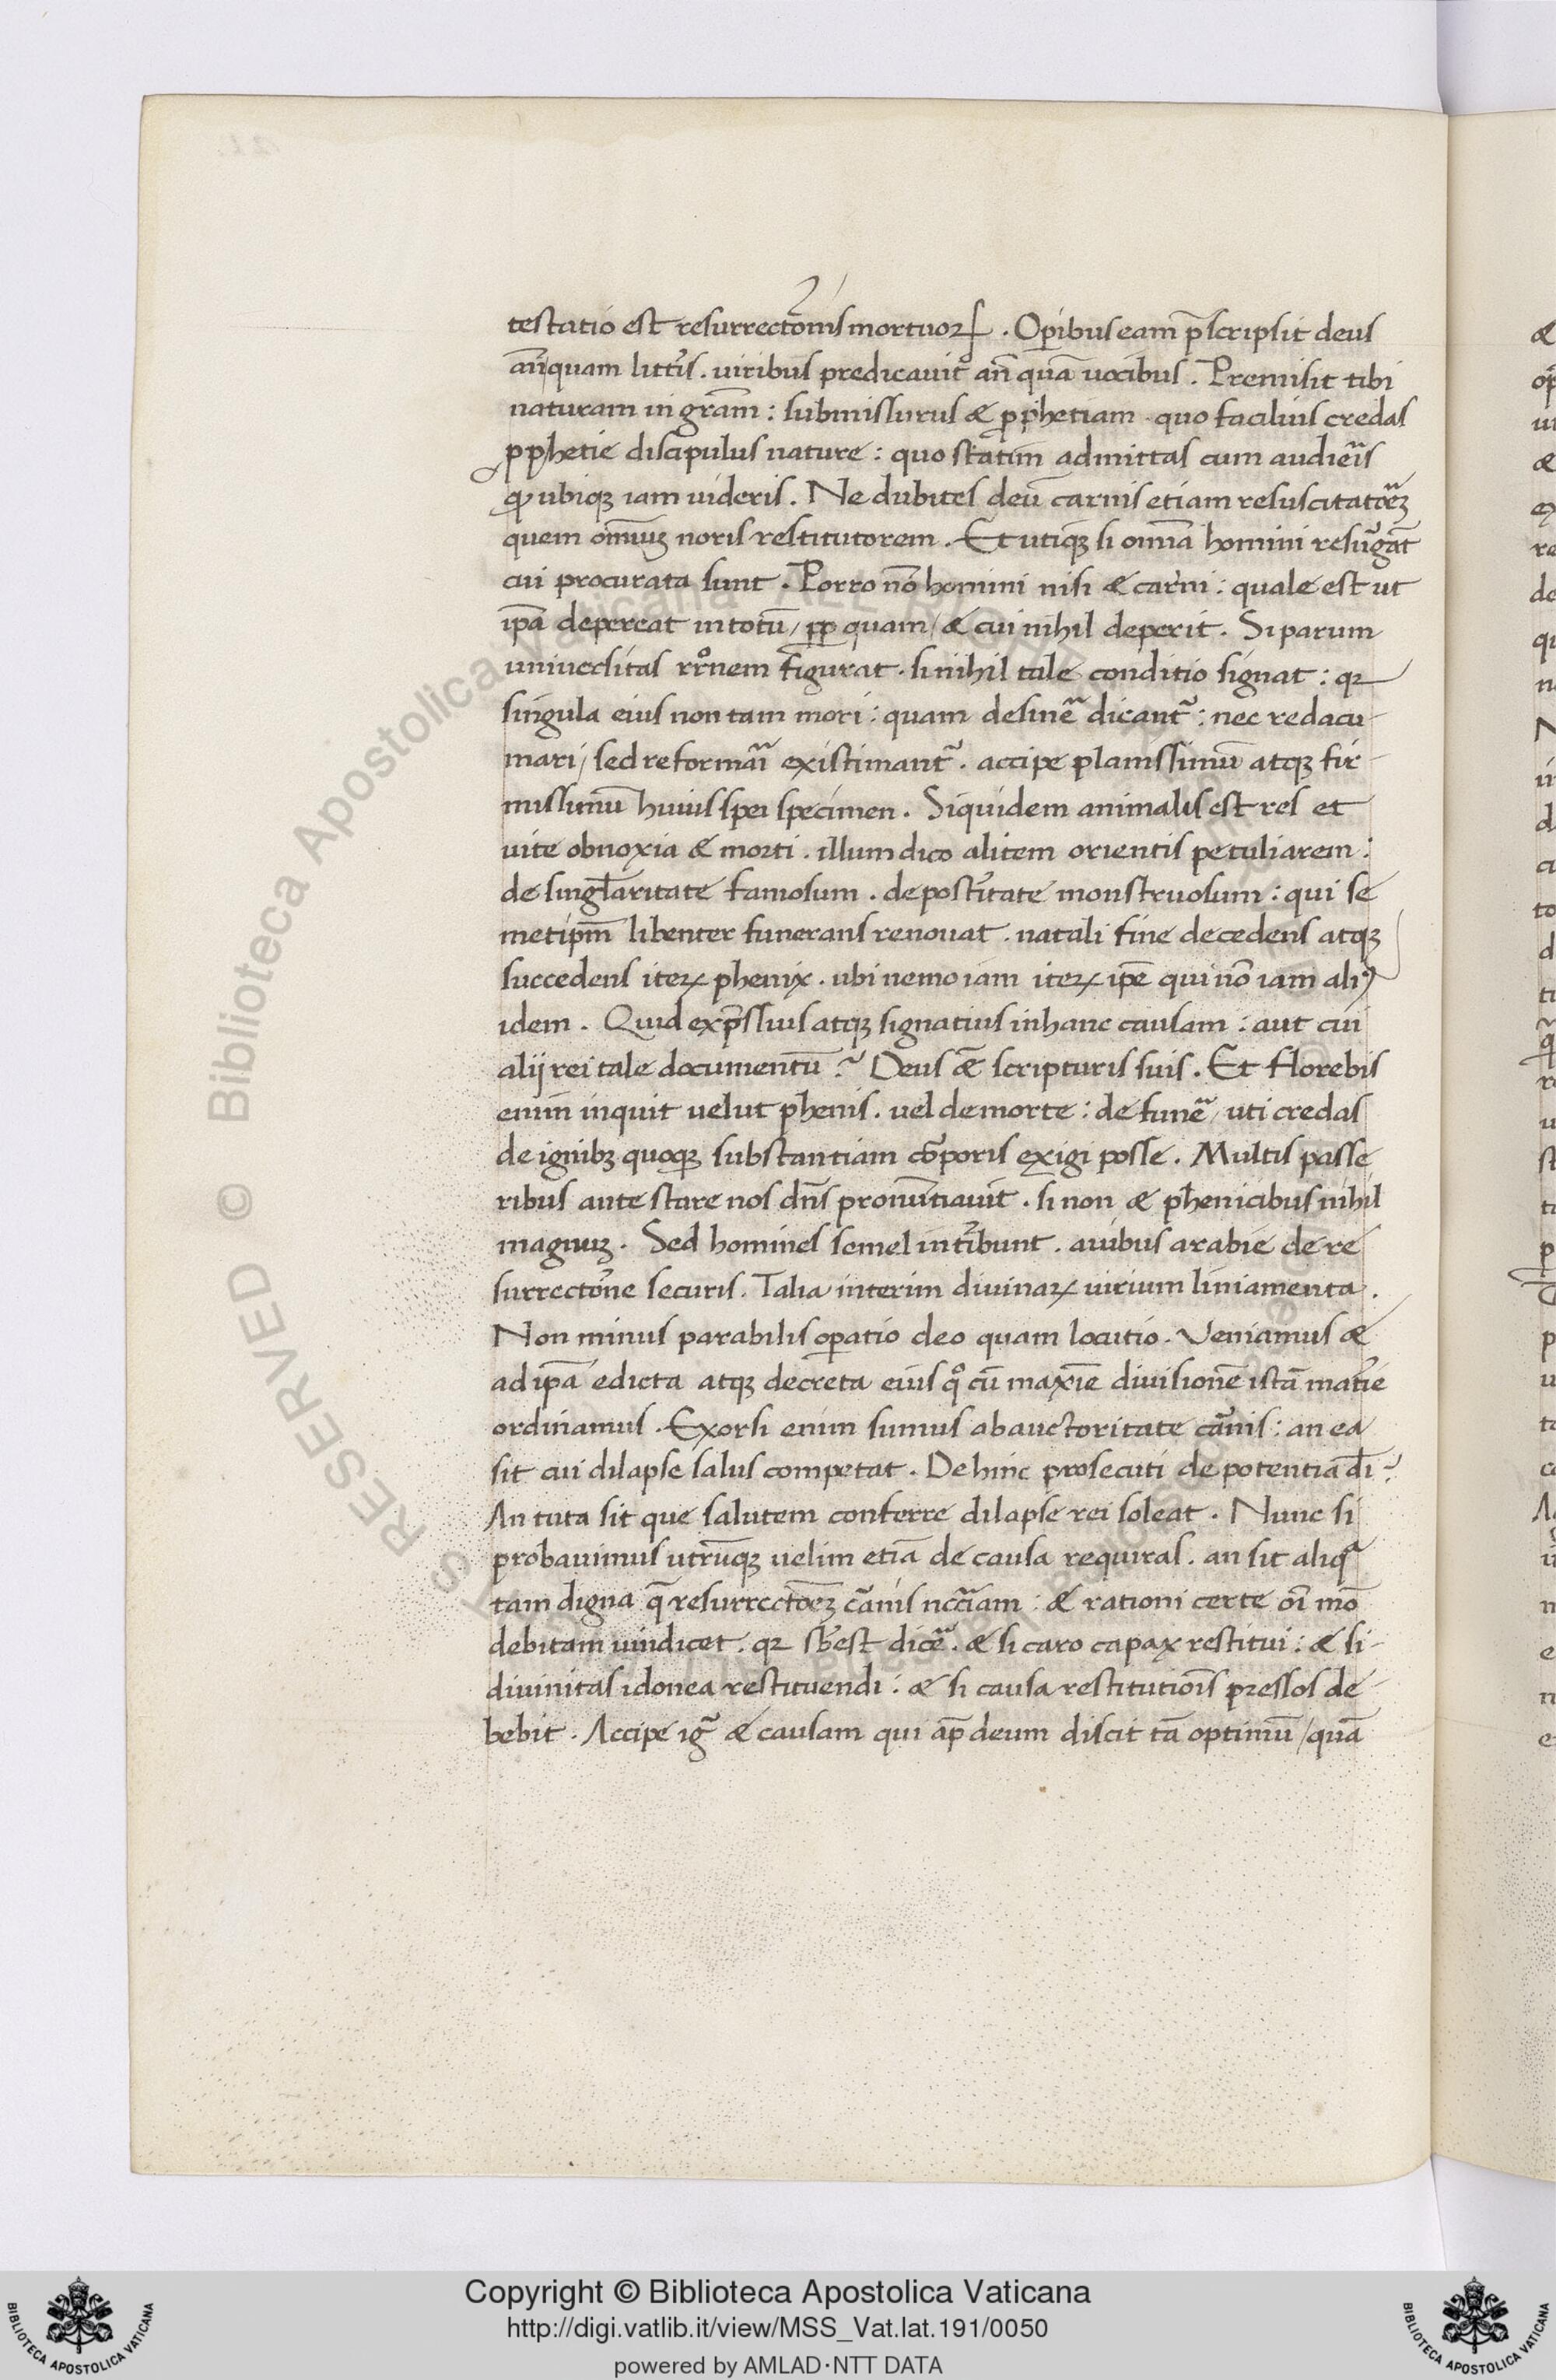 testatio est resurrectõnis mortuoꝝ. Oꝑibus eam p̄scripsit deus
an̄quam litt̃is. uiribus predicauit an̄ quã uocibus. Premisit tibi
naturam in gr̄am: submissurus & ꝓphetiam. quo facilius credas
ꝓphetie discipulus nature: quo statim admittas cum audieris
ꝙ ubiqꝫ iam uideris. Ne dubites deũ carnis etiam resuscitatorẽꝫ
quem omiũꝫ noris restitutorem. Et utiqꝫ si omĩa homini resurgãt
cui procurata sunt. Porro nõ homini nisi & carni: quale est ut
ip̃a depereat in totũ / ꝓp quam / & cui nihil deperit. Si parum
uniuersitas rr̃onem figurat. si nihil tale conditio signat: qꝛ
singula eius non tam mori: quam desinẽ dicant̃: nec redacu-
mari / sed reformari existimant̃. accipe planissimũ atqꝫ fir-
missimũ huius spei specimen. Siquidem animalis est res et
uite obnoxia & morti. illum dico alitem orientis peculiarem:
de singl̃aritate famosum. de post̃itate monstruosum: qui se
metip̃m libenter funerans renouat. natali fine decedens atqꝫ
succedens iteꝝ phenix. ubi nemo iam iteꝝ ip̃e qui nõ iam aliꝰ
idem. Quid exp̃ssius atqꝫ signatius in hanc causam: aut cui
alij rei tale documentũ? Deus & scripturis suis. Et florebis
enim inquit uelut phenis. uel de morte: de funẽ / uti credas
de ignibꝫ quoqꝫ substantiam corꝑoris exigi posse. Multis passe
ribus ante stare nos dñs pronũtiauit. si non & phenicibus nihil
magnuꝫ. Sed homines semel int̃ibunt. auibus arabie de re
surrectõne securis. Talia interim diuinaꝝ uirium liniamenta.
Non minus parabilis oꝑatio deo quam locutio. Veniamus &
ad ip̃a edicta atqꝫ decreta eius qͦ cũ maxĩe diuisionẽ istã mat̃ie
ordinamus. Exorsi enim sumus ab auctoritate carnis: an ea
sit cui dilapse salus competat. Dehinc prosecuti de potentia dĩ?
An tuta sit que salutem conferre dilapse rei soleat. Nunc si
probauimus utrũqꝫ uelim etiã de causa requiras. an sit aliqᵃ
tam digna q̃ resurrectõeꝫ carnis nccĩam: & rationi certe oĩ mõ
debitam uindicet. qꝛ sb̃est dicẽ. & si caro capax restitui: & si-
diuinitas idonea restituendi: & si causa restitutiõis pressos de-
bebit. Accipe ig̃ & causam qui ap̃ deum discit tã optimũ / quã
Copyright © Biblioteca Apostolica Vaticana
http://digi.vatlib.it/view/MSS_Vat.lat.191/0050
powered by AMLAD·NTT DATA